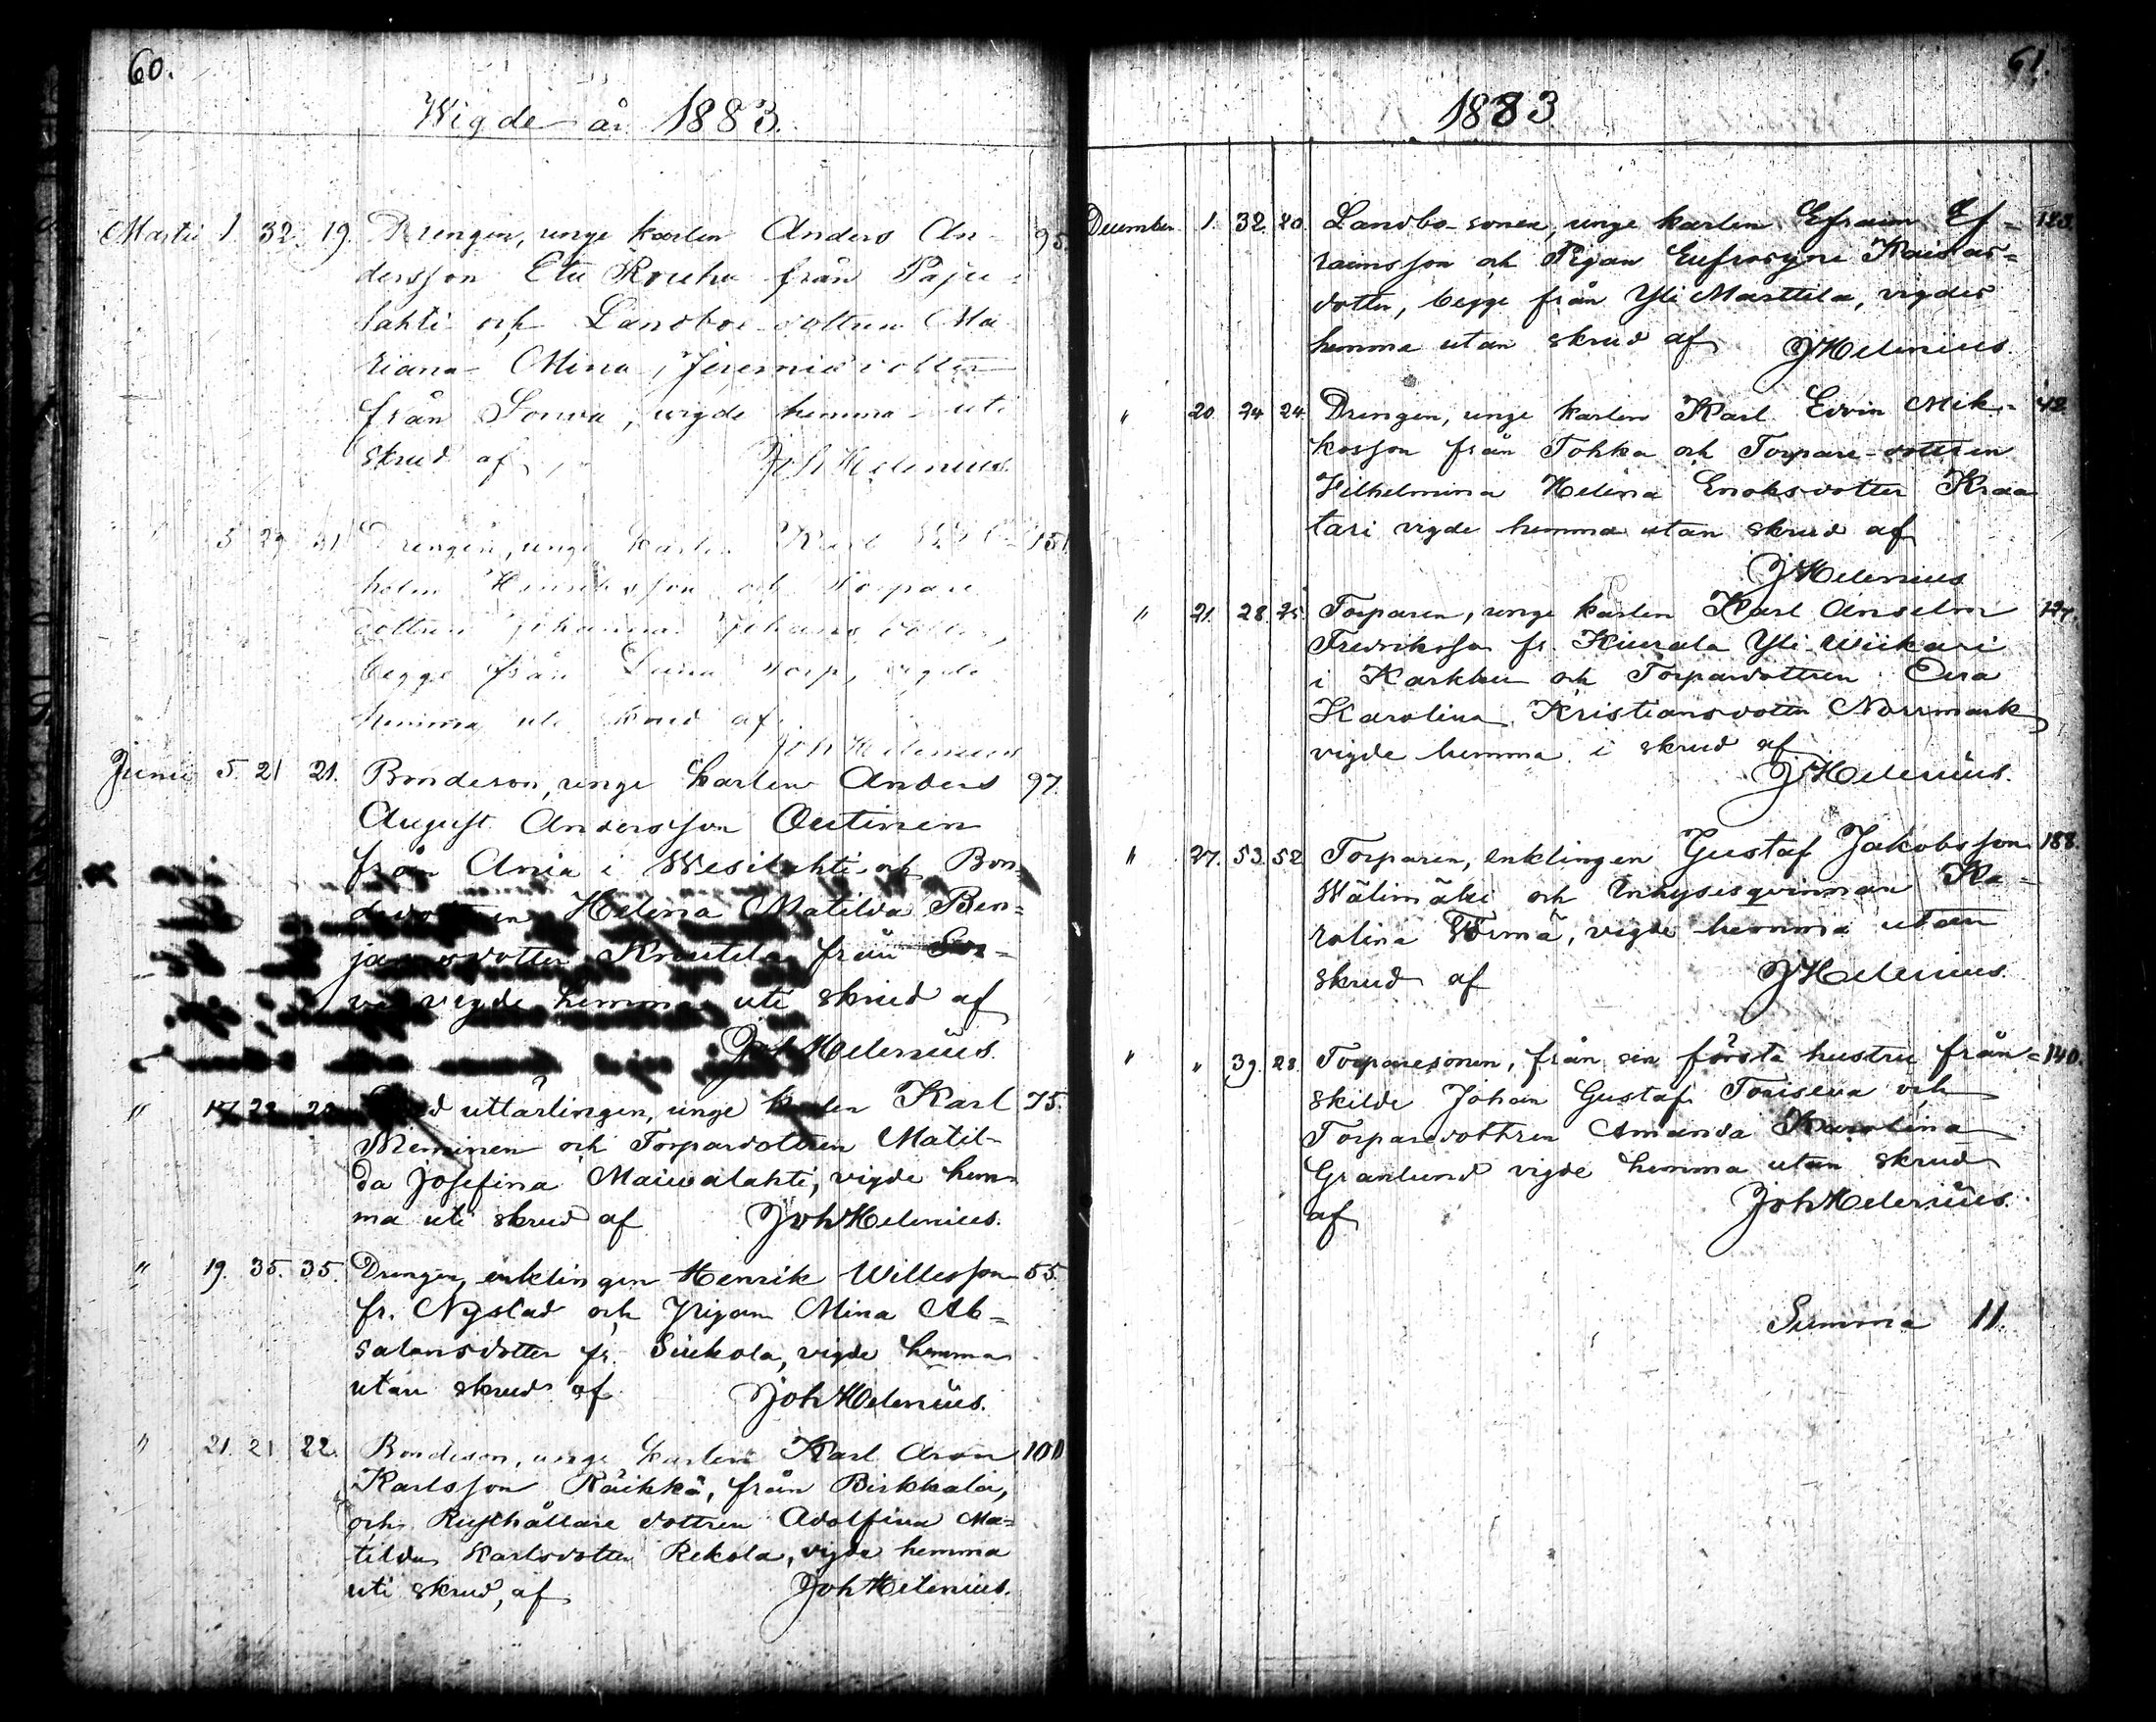 60.
Wigde år 1883.
Martii 1 32. 19. Drengen, unge karlen Anders An- 95.
dersson Etu Rouhu från Paju-
lahti och Landboe dottren Ma
riana Mina Jeremiædotter
från Souva, wigde hemma uti
skrud af Joh Helenius.
" 5 29 31 Drengen, unge karlen Karl Wil- 151
helm Henriksson och Torpare
dottren Johanna Johansdotter,
begge från torp, vigde
hemma uti skrud af
Joh Helenius
Junii 5. 21 21. Bondeson, unge karlen Anders 97.
August Andersson Outinen
från Ania i Wesilahti och Bon-
dedottren Helena Matilda Ben-
jamsdotter Knuutila från Sou-
va vigde hemma uti skrud af
Joh Helenius.
" 17. 22 22 uttärlingen, unge karlen Karl 75.
Nieminen och Torparedottren Matil-
da Josefina Maiwalahti, vigde hem-
ma uti skrud af Joh Helenius.
" 19. 35. 35. Drengen, enklingen Henrik Willesson 55.
fr. Nystad och Pigan Mina Ab-
salonsdotter fr. Siukola, vigde hemma
utan skrud af Joh Helenius.
" 21. 21 22. Bondeson, unge karlen Karl Aron 100
Karlsson Räikkä, från Birkkala,
och Rusthållare dottren Adolfina Ma-
tilda Karlsdotter Rekola, vigde hemma
uti skrud, af Joh Helenius.
61.
1883
December 1. 32. 20. Landbo-sonen, unge karlen Efraim Ef- 123.
raimsson och Pigan Eufrosyne Kaisas-
dotter, begge från Yli Marttila, vigdes
hemma utan skrud af JHelenius.
" 20. 24 24 Drengen, unge karlen Karl Edvin Mik- 42.
kosson från Tohka och Torpare-dottren
Vilhelmina Helena Enoksdotter Kraa
tari vigde hemma utan skrud af
JHelenius
" 21. 28. 25. Torparen, unge karlen Karl Anselm 127.
Fredriksson fr. Kiurala Yli Wiikari
i Karkku och Torparedottren Eva
Karolina Kristiansdotter Norrmark
vigde hemma i skrud af
JHelenius.
" 27. 53. 52 Torparen, enklingen Gustaf Jakobsson 188.
Wälimäki och Inhysesqvinnan Ka-
rolina Wirmä, vigde hemma utan
skrud af JHelenius.
" " 39. 28. Torparesonen, från sin första hustru från- 140.
skilde Johan Gustaf Toriseva och
Torparedottren Amanda Karolina
Granlund vigde hemma utan skrud
af Joh Helenius.
Summa 11.